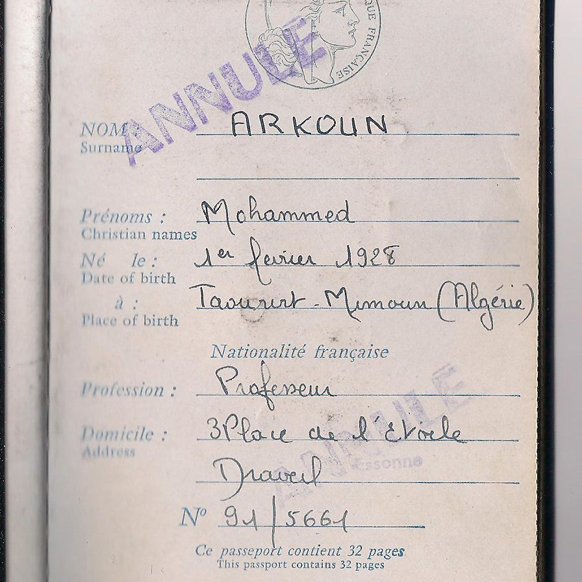 QUE FRANÇAISE
ANNULE
NOM ARKOUN
Surname
Prénoms : Mohammed
Christian names
Né le : 1er février 1928
Date of birth
à : Taourirt-Mimoun (Algérie)
Place of birth
Nationalité française
Profession : Professeur
Domicile : 3 Place de l'Etoile
Address
Draveil
ANNULE
Essonne
N° 91/5661
Ce passeport contient 32 pages
This passport contains 32 pages